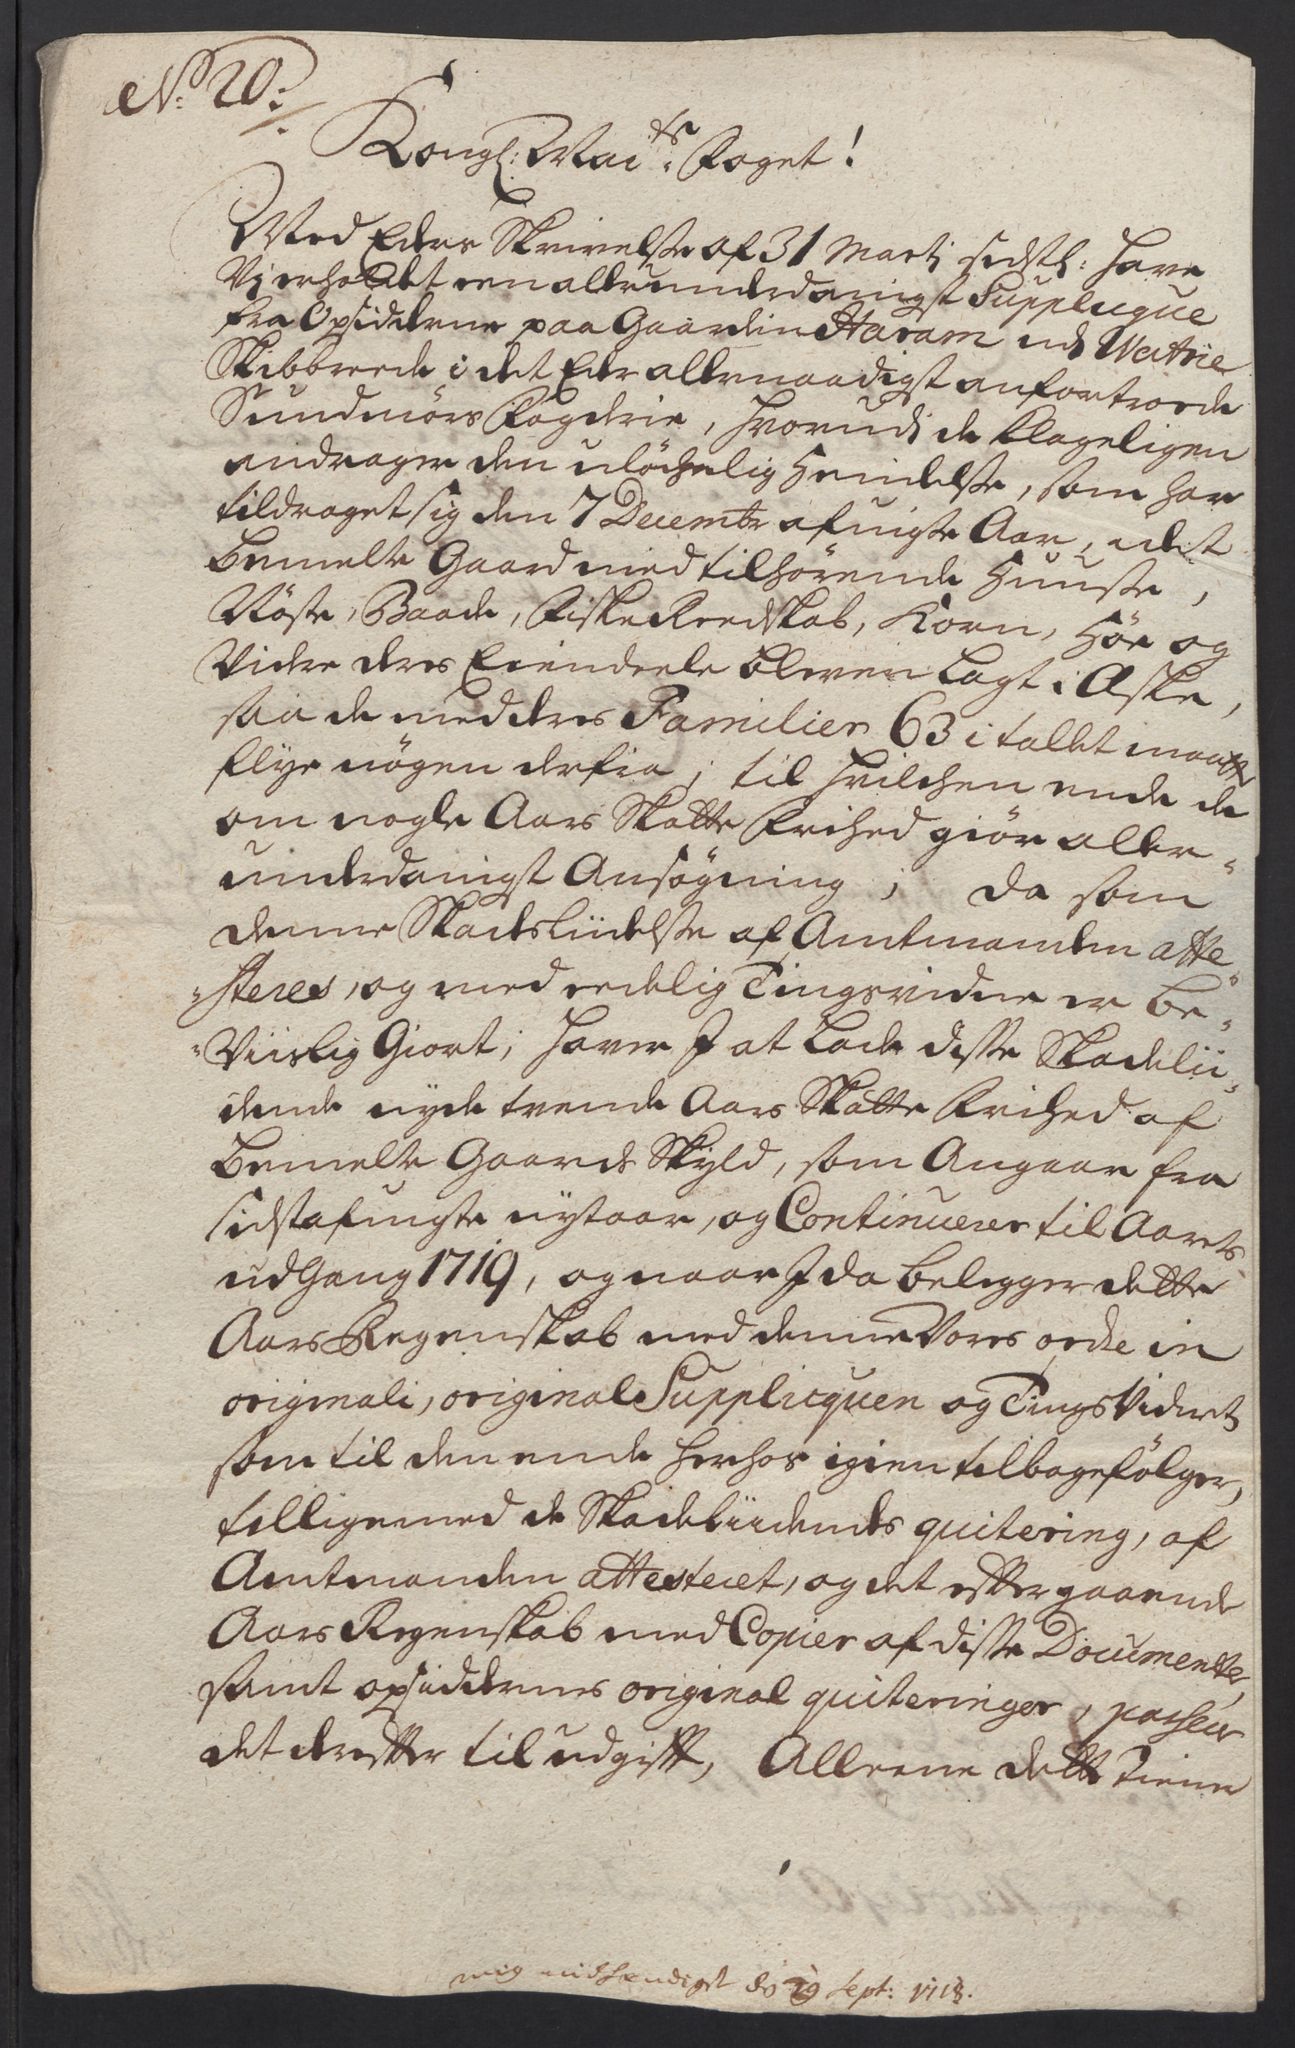 No: 20:
Kongl: Mai:ts Foget!
Med Eders Skrivelse af 31 Martj sidstl: have
Vj erholdet een allerunderdanigst Supplicque
fra Opsidderne paa Gaarden Haram udj Watne
Skibbrede i det Eder allernaadigst anfortroede
Sundmørs Fogderie, hvorudj de klageligen
andrager den ulöchelig Hendelse, som har
tildraget sig den 7 Decembr afvigte Aar, at
bemelte Gaard med tilhörende Huuse,
Nöste, Baade, Fiske Reedskab, Korn, Höe og
Videre deres Eiendeele bleven lagt i Aske,
saa de med deres Familier 63 i tallet maatte
flye nögen derfra; til hvilchen ende de
om nogle Aars Skatte Frihed giör aller-
underdanigst Ansögning; da som
denne Skadsliidelse af Amtmanden atte-
-steres, og med eedelig Tingsvidne er be-
-Viislig Giort; haver I at lade disse Skadelii-
dende nyde trende Aars Skatte Frihed af
bemelte Gaards Skyld, som Angaar fra
sidstafvigte nytaar, og Continuerer til Aarets
udGang 1719, og naar I da belegger dette
Aars Regenskab med denne Vores ordre in
originali, original Supplicquen og TingsVidnet
som til den ende herhos igien tilbagefölger,
tilligemed de Skadeliidendes quitering, af
Amtmanden attesteret, og det efftergaaende
Aars Regenskab med Copier af disse Documenter,
samt opsiddernes original quiteringer, passerer
det derefter til udgifft, Alleene dette tiener
mig indhændiget d: 29 Sept: 1718.